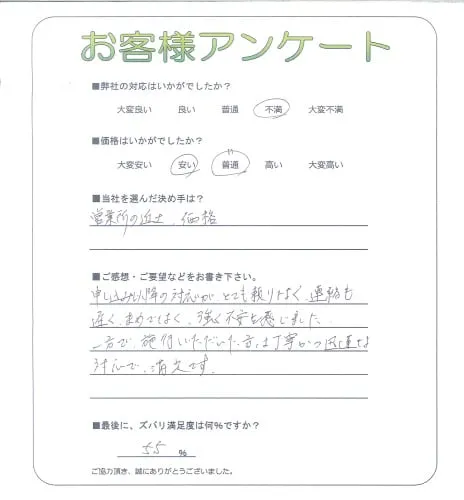 お客様アンケート
■弊社の対応はいかがでしたか?
大変良い 良い 普通 不満 大変不満
■価格はいかがでしたか?
大変安い 安い 普通 高い 大変高い
■当社を選んだ決め手は?
営業所の近さ、価格
■ご感想・ご要望などをお書き下さい。
申し込み以降の対応が とても頼りなく、連絡も
遅く、まめではなく、強く不安を感じました。
一方で、施行いただいた方は丁寧かつ迅速な
対応で、満足です。
■最後に、ズバリ満足度は何%ですか?
55 %
ご協力頂き、誠にありがとうございました。